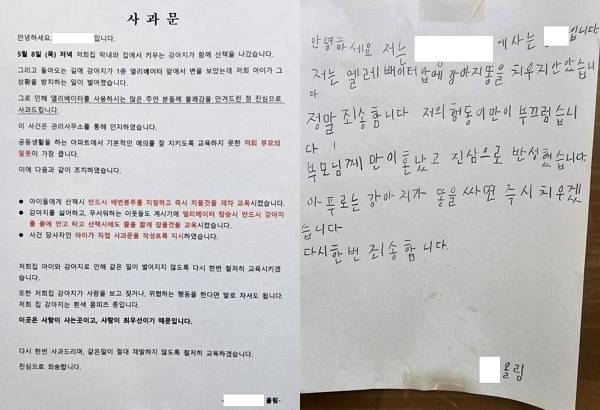 사과문
안녕하세요. 입니다.
5월 8일 (목) 저녁 저희집 막내와 집에서 키우는 강아지가 함께 산책을 나갔습니다.
그리고 돌아오는 길에 강아지가 1층 엘리베이터 앞에서 변을 보았는데 저희 아이가 그
상황을 방치하는 일이 벌어졌습니다.
그로 인해 엘리베이터를 사용하시는 많은 주민 분들께 불쾌감을 안겨드린 점 진심으로
사과드립니다.
이 사건은 관리사무소를 통해 인지하였습니다.
공동생활을 하는 아파트에서 기본적인 예의를 잘 지키도록 교육하지 못한 저희 부모의
잘못이 가장 큽니다.
이에 다음과 같이 조치하였습니다.
● 아이들에게 산책시 반드시 배변봉투를 지참하고 즉시 치울것을 재차 교육시켰습니다.
● 강아지를 싫어하고, 무서워하는 이웃들도 계시기에 엘리베이터 탑승시 반드시 강아지
를 품에 안고 타고 산책시에도 줄을 짧게 잡을것을 교육시켰습니다.
● 사건 당사자인 아이가 직접 사과문을 작성토록 지시하였습니다.
저희집 아이와 강아지로 인해 같은 일이 벌어지지 않도록 다시 한번 철저히 교육시키겠
습니다.
또한 저희집 강아지가 사람을 보고 짖거나, 위협하는 행동을 한다면 발로 차셔도 됩니다.
저희 집 강아지는 흰색 폼피츠 종입니다.
이곳은 사람이 사는곳이고, 사람이 최우선이기 때문입니다.
다시 한번 사과드리며, 같은일이 절대 재발하지 않도록 철저히 교육하겠습니다.
진심으로 죄송합니다.
- 올림-
안녕하세요 저는 에사는 입니다
저는 엘레베이터앞에 강아지똥을 치우지안았습니
다
정말 죄송합니다 저의 행동이만이 부끄럽습니
다
부모님께 만이 혼났고 진심으로 반성했습니다.
아푸로는 강아지가 똥을 싸면 즉시 치우겠
습니다
다시한번 죄송합니다.
올림